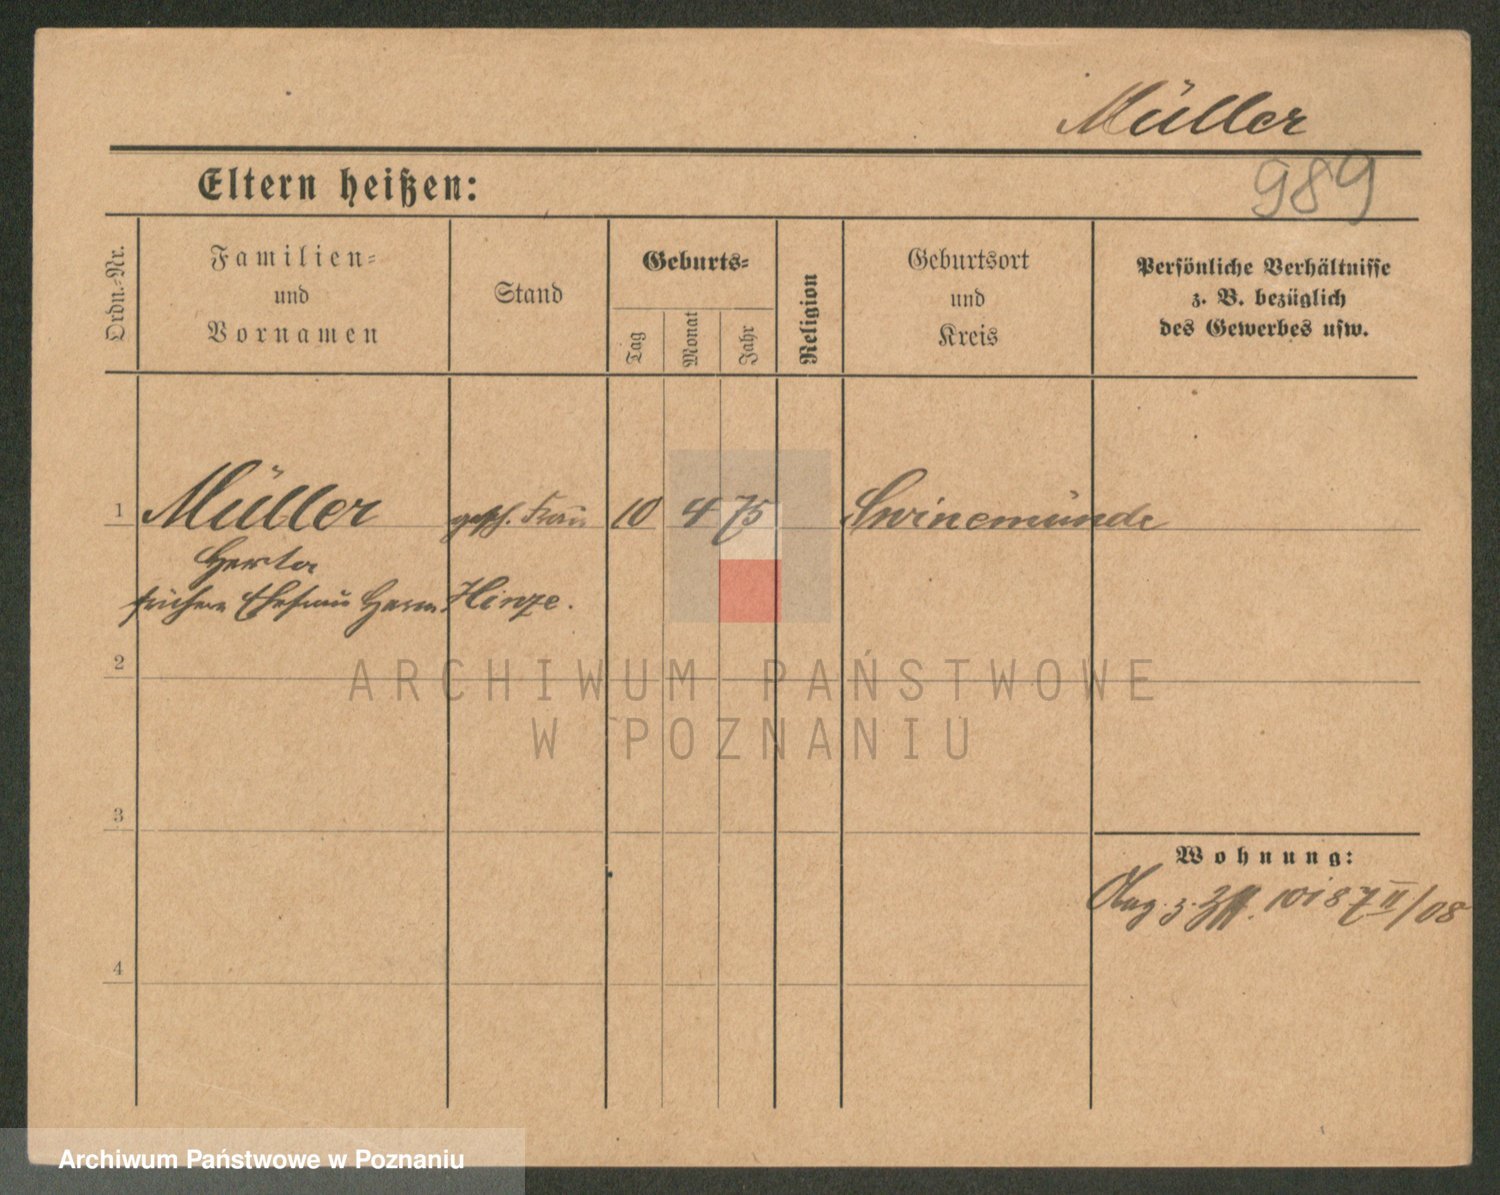 Müller
989
Eltern heißen:
Ordn.-Nr.
Familien-
und
Vornamen
Stand
Geburts-
Tag
Monat
Jahr
Religion
Geburtsort
und
Kreis
Persönliche Verhältnisse
z. B. bezüglich
des Gewerbes usw.
1 Müller gesch. Frau 10 4 75 Swinemünde
Herta
frühere Ehefrau Herm. Hinze.
2
ARCHIWUM PAŃSTWOWE
W POZNANIU
3
Wohnung:
z. II/08
4
Archiwum Państwowe w Poznaniu